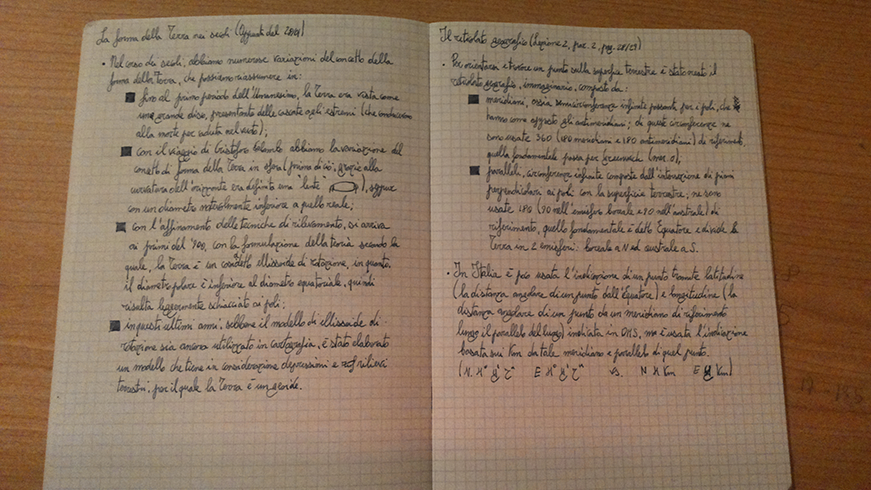 La forma della Terra nei secoli (Appunti del
• Nel corso dei secoli, abbiamo numerose variazioni del concetto della
forma della Terra, che possiamo riassumere in:
fino al primo periodo dell'Umanesimo, la Terra era vista come
un grande disco, presentante delle cascate agli estremi (che conducevano
alla morte per caduta nel vuoto);
con il viaggio di Cristoforo Colombo abbiamo la variazione del
concetto di forma della Terra in sfera (prima di ciò, grazie alla
curvatura dell'orizzonte era definita una "lente"), seppur
con un diametro notevolmente inferiore a quello reale;
con l'affinamento delle tecniche di rilevamento, si arriva
ai primi del '900, con la formulazione della teoria secondo la
quale, la Terra è un cosiddetto ellissoide di rotazione, in quanto
il diametro polare è inferiore al diametro equatoriale, quindi
risulta leggermente schiacciato ai poli;
in questi ultimi anni, sebbene il modello di ellissoide di
rotazione sia ancora utilizzato in cartografia, è stato elaborato
un modello che tiene in considerazione depressioni e rilievi
terrestri, per il quale la Terra è un geoide.
Il reticolato geografico (Lezione 2, par. 2, pag. 28/29)
• Per orientarsi e trovare un punto sulla superficie terrestre è stato messo il
reticolato geografico, immaginario, composto da:
meridiani, ossia semicirconferenze infinite passanti per i poli, che
hanno come opposto gli antimeridiani; di queste circonferenze ne
sono usate 360 (180 meridiani e 180 antimeridiani) di riferimento,
quella fondamentale passa per Greenwich (mer. 0),
paralleli, circonferenze infinite composte dall'intersezione di piani
perpendicolari ai poli con la superficie terrestre; ne sono
usate 180 (90 nell'emisfero boreale e 90 nell'australe) di
riferimento, quello fondamentale è detto Equatore e divide la
Terra in 2 emisferi: boreale a N ed australe a S.
• In Italia è poi usata l'indicazione di un punto tramite latitudine
(la distanza angolare di un punto dall'Equatore) e longitudine (la
distanza angolare di un punto da un meridiano di riferimento
lungo il parallelo del luogo) indicata in DMS, ma è usata l'indicazione
basata sui Km da tale meridiano e parallelo di quel punto.
vs. N Km E Km)